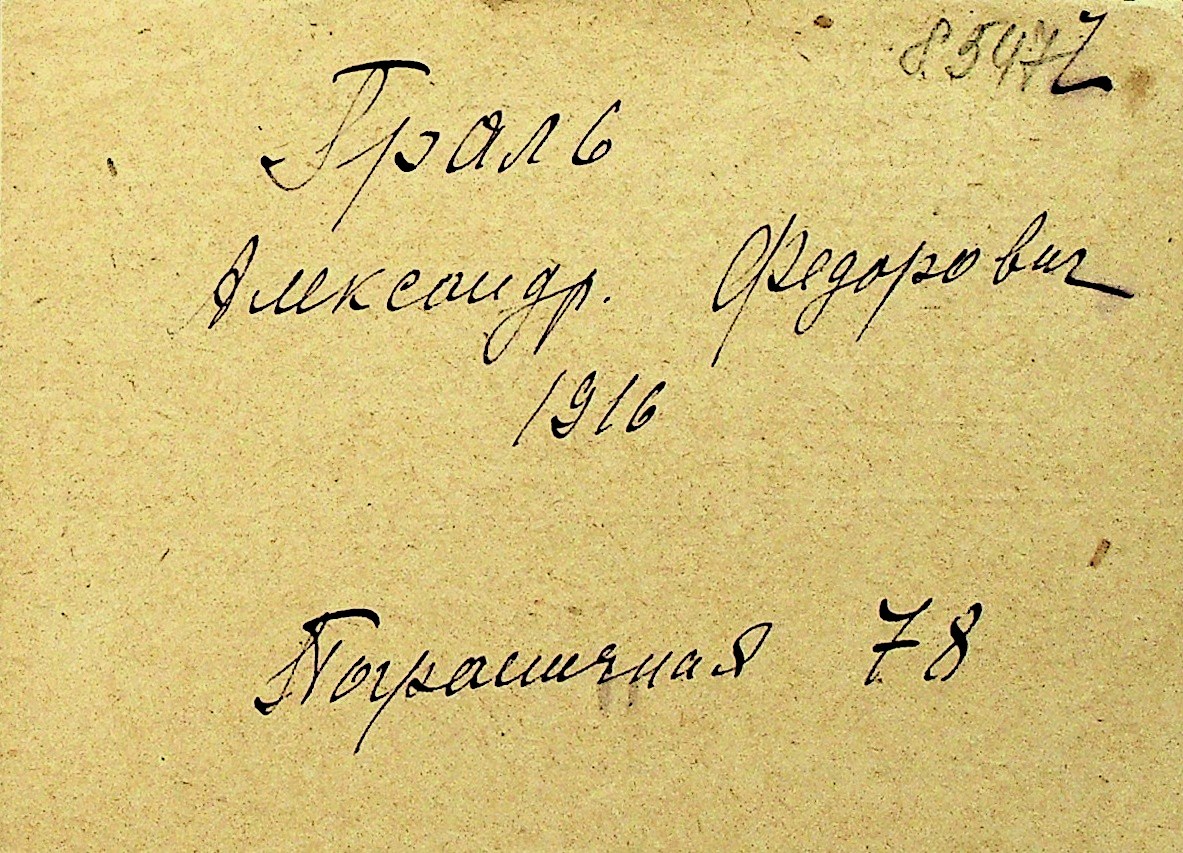 Граль
Александр. Федорович
1916
Пограничная 78